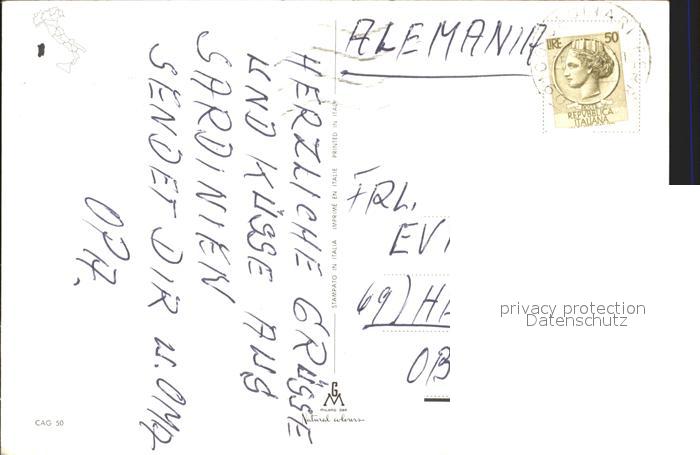 HERZLICHE GRÜSSE
UND KÜSSE AUS
SARDINIEN
SENDET DIR U. OMA
OPA.
ALEMANIA
LIRE 50
POSTE
REPVBBLICA
ITALIANA
FRL.
EVI
69) HA
OB
privacy protection
Datenschutz
STAMPATO IN ITALIA IMPRIMÉ EN ITALIE PRINTED IN ITALY
GM
Natural colours
CAG 50